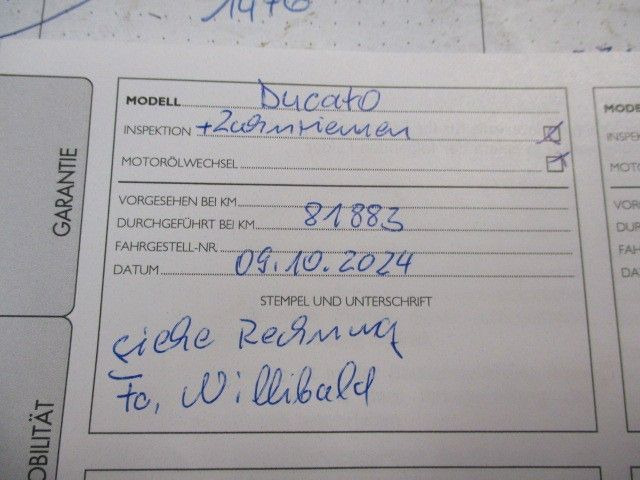 1476
MODELL Ducato
INSPEKTION + Zahnriemen
MOTORÖLWECHSEL
VORGESEHEN BEI KM
DURCHGEFÜHRT BEI KM 81883
FAHRGESTELL-NR.
DATUM 09.10.2024
STEMPEL UND UNTERSCHRIFT
siehe Rechnung
Fa. Willibald
GARANTIE
OBILITÄT
MODE
INSPE
MOTO
VOR
DUR
FAH
DA